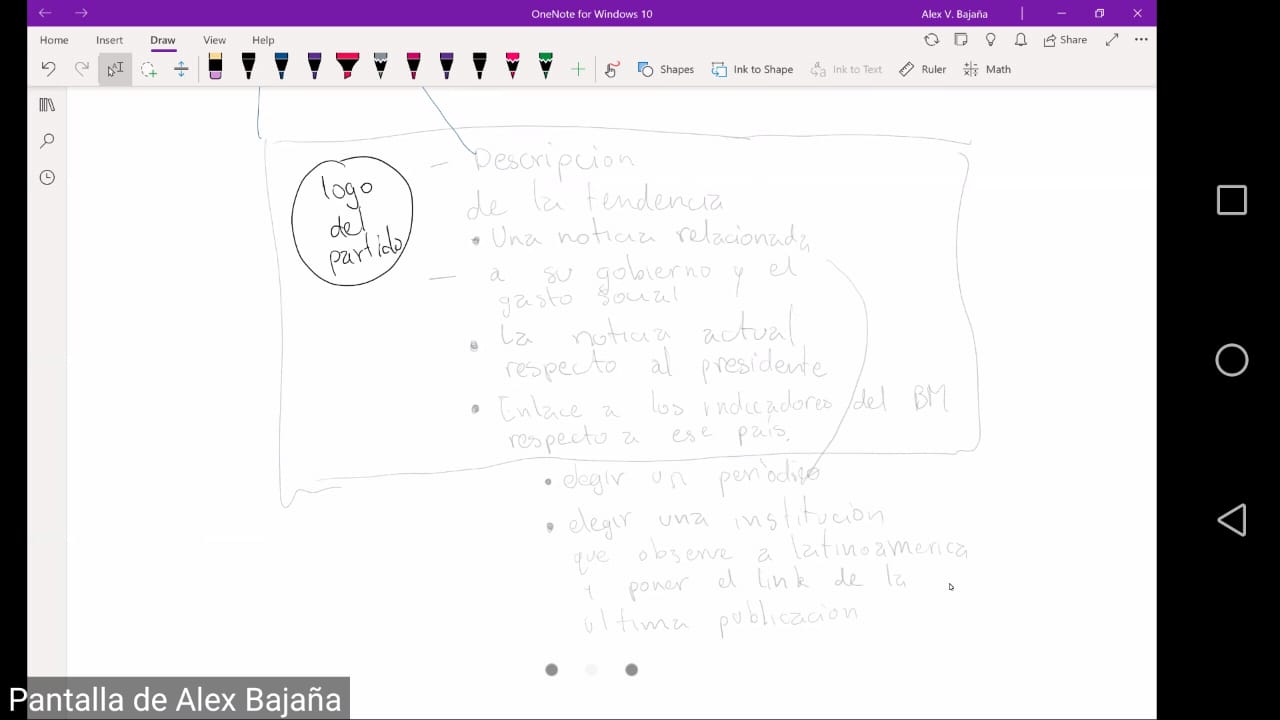 OneNote for Windows 10
Alex V. Bajaña
Home
Insert
Draw
View
Help
Share
Shapes
Ink to Shape
Ink to Text
Ruler
Math
logo
del
partido
- Descripcion
de la tendencia
• Una noticia relacionada
- a su gobierno y el
gasto social
• La noticia actual
respecto al presidente
• Enlace a los indicadores del BM
respecto a ese país.
• elegir un periódico
• elegir una institución
que observe a latinoamerica
y poner el link de la
ultima publicación
Pantalla de Alex Bajaña